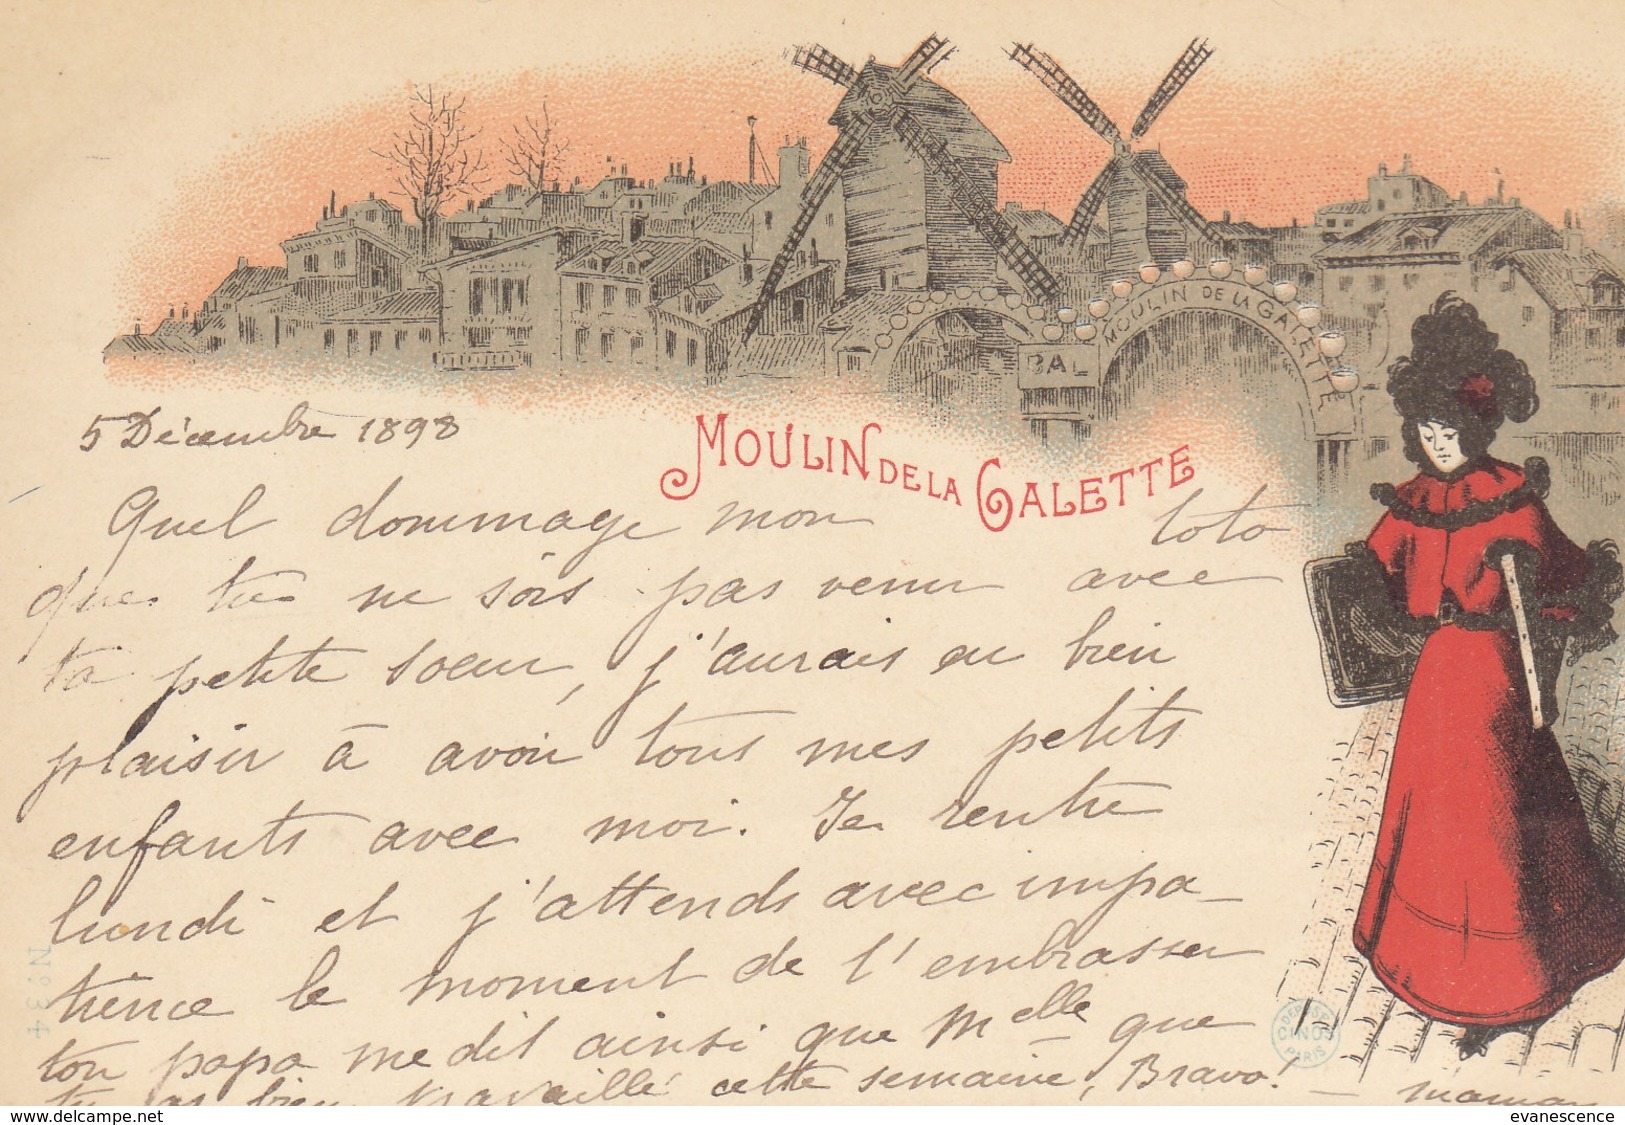 MOULIN DE LA GALETTE
BAL
MOULIN DE LA GALETTE
5 Décembre 1898
Quel dommage mon toto
que tu ne sois pas venu avec
ta petite soeur, j'aurais eu bien
plaisir à avoir tous mes petits
enfants avec moi. Je rentre
lundi et j'attends avec impa-
tience le moment de l'embrasser
ton papa me dit ainsi que Melle que
tu as bien travaillé cette semaine, Bravo! — maman
No 34
DEPOSE
CINOS
PARIS
evanescence